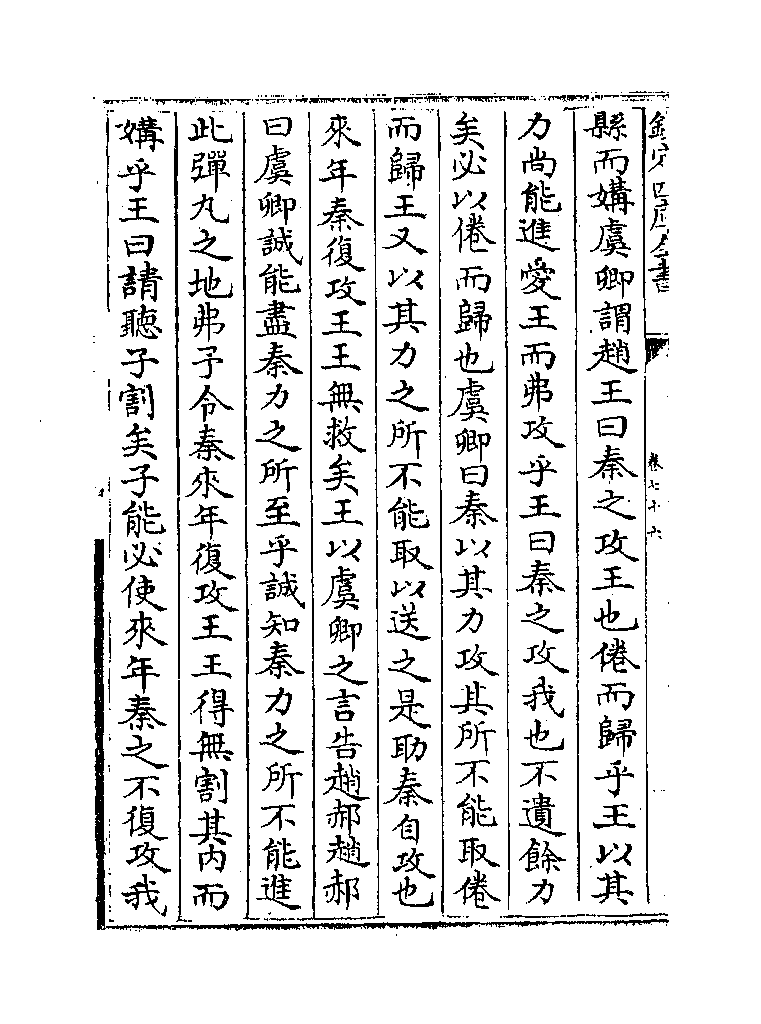 欽定四庫全書
卷七十六
縣而媾虞卿謂趙王曰秦之攻王也倦而歸乎王以其
力尚能進愛王而弗攻乎王曰秦之攻我也不遺餘力
矣必以倦而歸也虞卿曰秦以其力攻其所不能取倦
而歸王又以其力之所不能取以送之是助秦自攻也
來年秦復攻王王無救矣王以虞卿之言告趙郝趙郝
曰虞卿誠能盡秦力之所至乎誠知秦力之所不能進
此彈丸之地弗予令秦來年復攻王王得無割其內而
媾乎王曰請聽子割矣子能必使來年秦之不復攻我